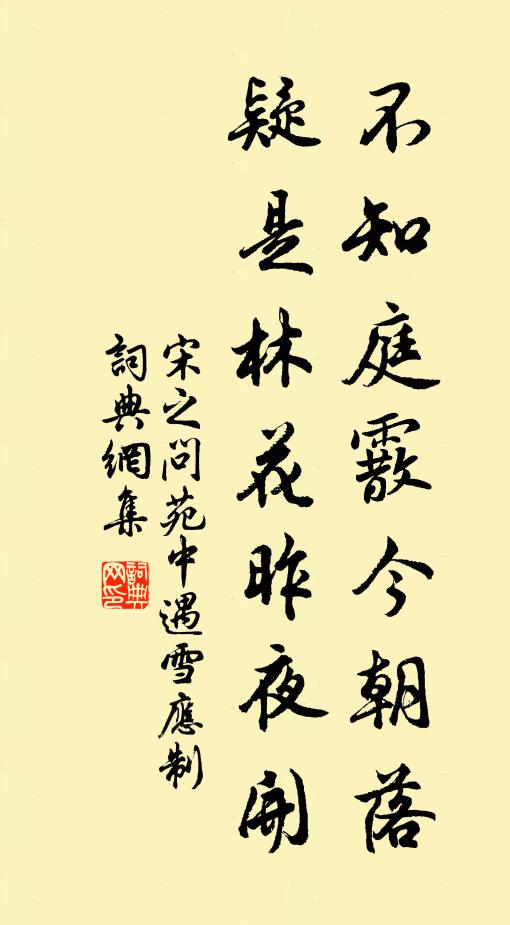 不知庭霰今朝落
疑是林花昨夜開
宋之問苑中遇雪應制
詞典網集
詞典网印